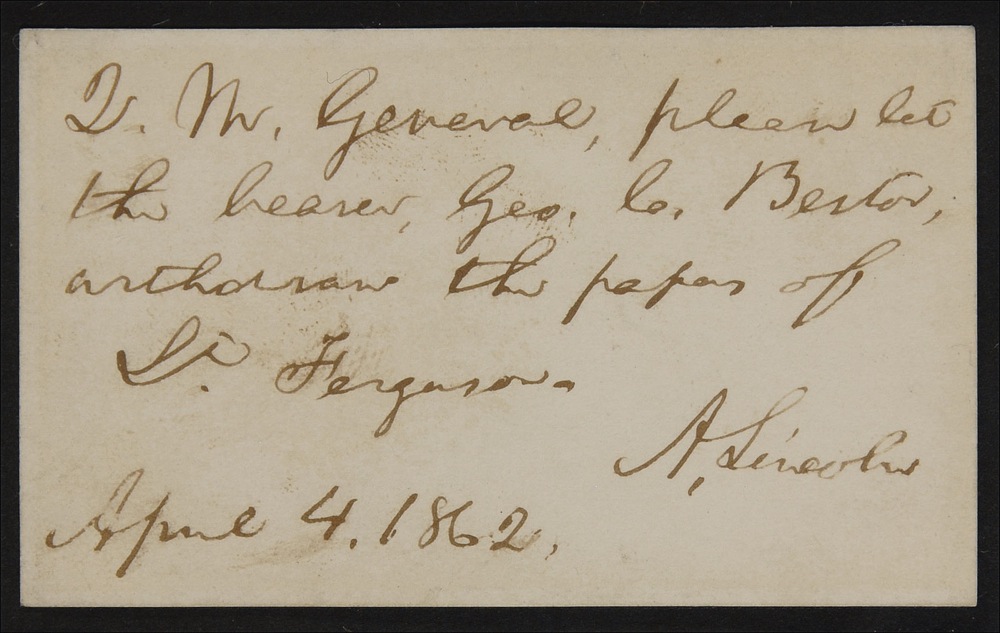 Q. M. General, please let
the bearer, Geo. C. Bestor,
withdraw the papers of
Dr. Ferguson.
A. Lincoln
April 4. 1862.